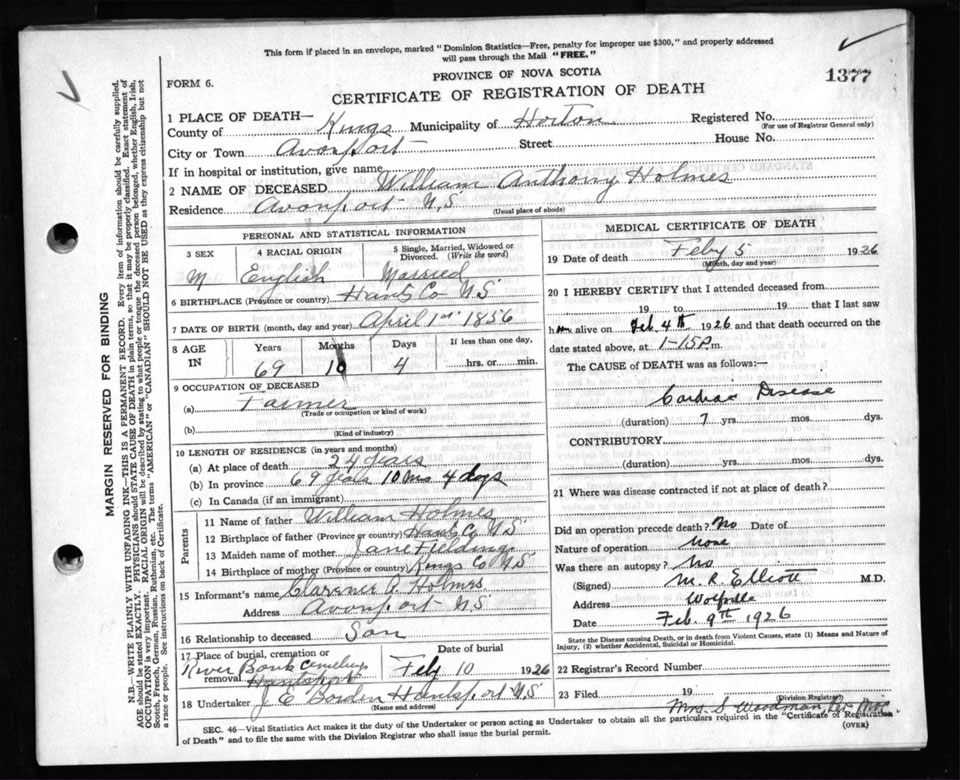 This form if placed in an envelope, marked "Dominion Statistics—Free, penalty for improper use $300," and properly addressed
will pass through the Mail "FREE."
FORM 6.
PROVINCE OF NOVA SCOTIA
CERTIFICATE OF REGISTRATION OF DEATH
1377
1 PLACE OF DEATH—
County of Kings Municipality of Horton Registered No.
(For use of Registrar General only)
City or Town Avonport Street House No.
If in hospital or institution, give name
2 NAME OF DECEASED William Anthony Holmes
Residence Avonport N.S
(Usual place of abode)
PERSONAL AND STATISTICAL INFORMATION
3 SEX 4 RACIAL ORIGIN 5 Single, Married, Widowed or Divorced. (Write the word)
M English Married
6 BIRTHPLACE (Province or country) Hants Co N.S
7 DATE OF BIRTH (month, day and year) April 1st 1856
8 AGE IN Years Months Days If less than one day,
69 10 4 hrs. or min.
9 OCCUPATION OF DECEASED
(a) Farmer
(Trade or occupation or kind of work)
(b)
(Kind of industry)
10 LENGTH OF RESIDENCE (in years and months)
(a) At place of death 24 years
(b) In province 69 years 10 mos 4 days
(c) In Canada (if an immigrant)
Parents
11 Name of father William Holmes
12 Birthplace of father (Province or country) Hants Co N.S
13 Maiden name of mother Jane Fielding
14 Birthplace of mother (Province or country) Kings Co N.S
15 Informant's name Clarence A. Holmes
Address Avonport N.S
16 Relationship to deceased Son
17 Place of burial, cremation or removal Date of burial
River Bank Cemetery Hantsport Feby 10 1926
18 Undertaker J E Borden Hantsport N.S
(Name and address)
MEDICAL CERTIFICATE OF DEATH
19 Date of death Feby 5 1926
(Month, day and year)
20 I HEREBY CERTIFY that I attended deceased from
19 to 19 that I last saw
him alive on Feb. 4th 1926 and that death occurred on the
date stated above, at 1-15 P.m.
The CAUSE of DEATH was as follows:—
Cardiac Disease
(duration) 7 yrs. mos. dys.
CONTRIBUTORY
(duration) yrs. mos. dys.
21 Where was disease contracted if not at place of death?
Did an operation precede death? No Date of
Nature of operation None
Was there an autopsy? No
(Signed) M. R. Elliott M.D.
Address Wolfville
Date Feb. 9th 1926
State the Disease causing Death, or in death from Violent Causes, state (1) Means and Nature of
Injury, (2) whether Accidental, Suicidal or Homicidal.
22 Registrar's Record Number
23 Filed 19
(Division Registrar)
Mrs. S Woodman
SEC. 46—Vital Statistics Act makes it the duty of the Undertaker or person acting as Undertaker to obtain all the particulars required in the "Certificate of Registration
of Death" and to file the same with the Division Registrar who shall issue the burial permit.
(OVER)
MARGIN RESERVED FOR BINDING
N.B.—WRITE PLAINLY WITH UNFADING INK—THIS IS A PERMANENT RECORD. Every item of information should be carefully supplied.
AGE should be stated EXACTLY. PHYSICIANS should STATE CAUSE OF DEATH in plain terms, so that it may be properly classified. Exact statement of
OCCUPATION is very important. RACIAL ORIGIN will be described by stating to what people or tongue the deceased person belonged, whether English, Irish,
Scotch, French, German, Russian, Ruthenian, etc. The terms "AMERICAN" or "CANADIAN" SHOULD NOT BE USED as they express citizenship but not
a race or people. See instructions on back of Certificate.